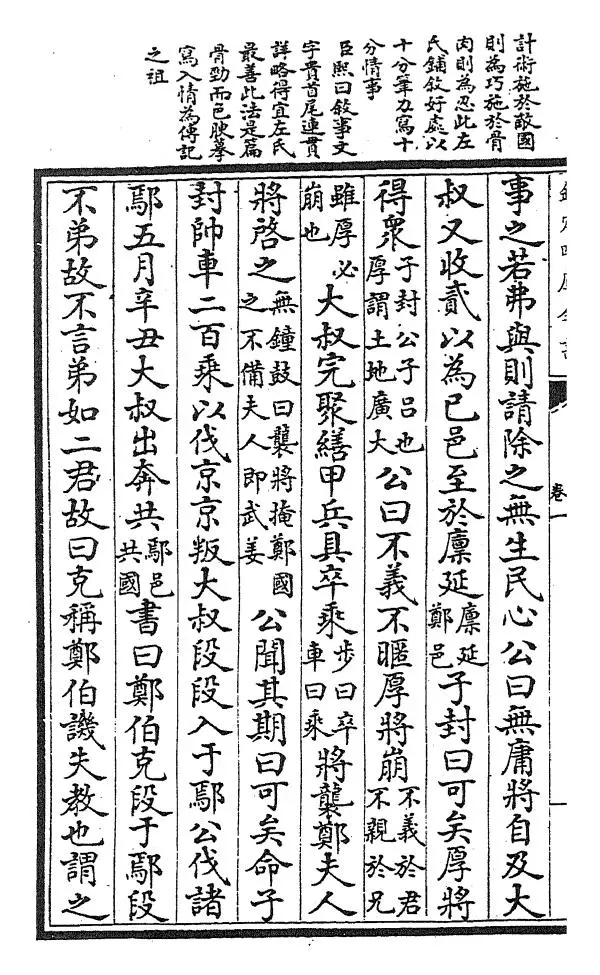 計術施於敵國
則為巧施於骨
肉則為忍此左
氏鋪敘好處以
十分筆力寫十
分情事
臣熙曰敘事文
字貴首尾連貫
詳略得宜左氏
最善此法是篇
骨勁而色腴摹
寫入情為傳記
之祖
欽定四庫全書
卷一
事之若弗與則請除之無生民心公曰無庸將自及大
叔又收貳以為已邑至於廪延廪延鄭邑子封曰可矣厚將
得衆子封公子吕也厚謂土地廣大公曰不義不暱厚將崩不義於君不親於兄
雖厚必崩也大叔完聚繕甲兵具卒乘步曰卒車曰乘將襲鄭夫人
將啓之無鐘鼓曰襲將掩鄭國之不備夫人即武姜公聞其期曰可矣命子
封帥車二百乘以伐京京叛大叔段段入于鄢公伐諸
鄢五月辛丑大叔出奔共鄢邑共國書曰鄭伯克段于鄢段
不弟故不言弟如二君故曰克稱鄭伯譏失教也謂之